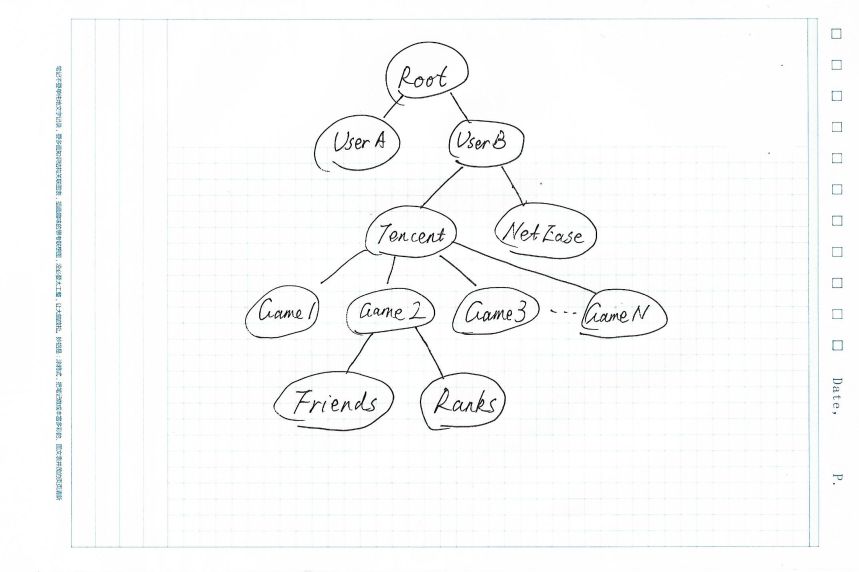 Root
User A
User B
Tencent
NetEase
Game 1
Game 2
Game 3
...
Game N
Friends
Ranks
Date,
P.